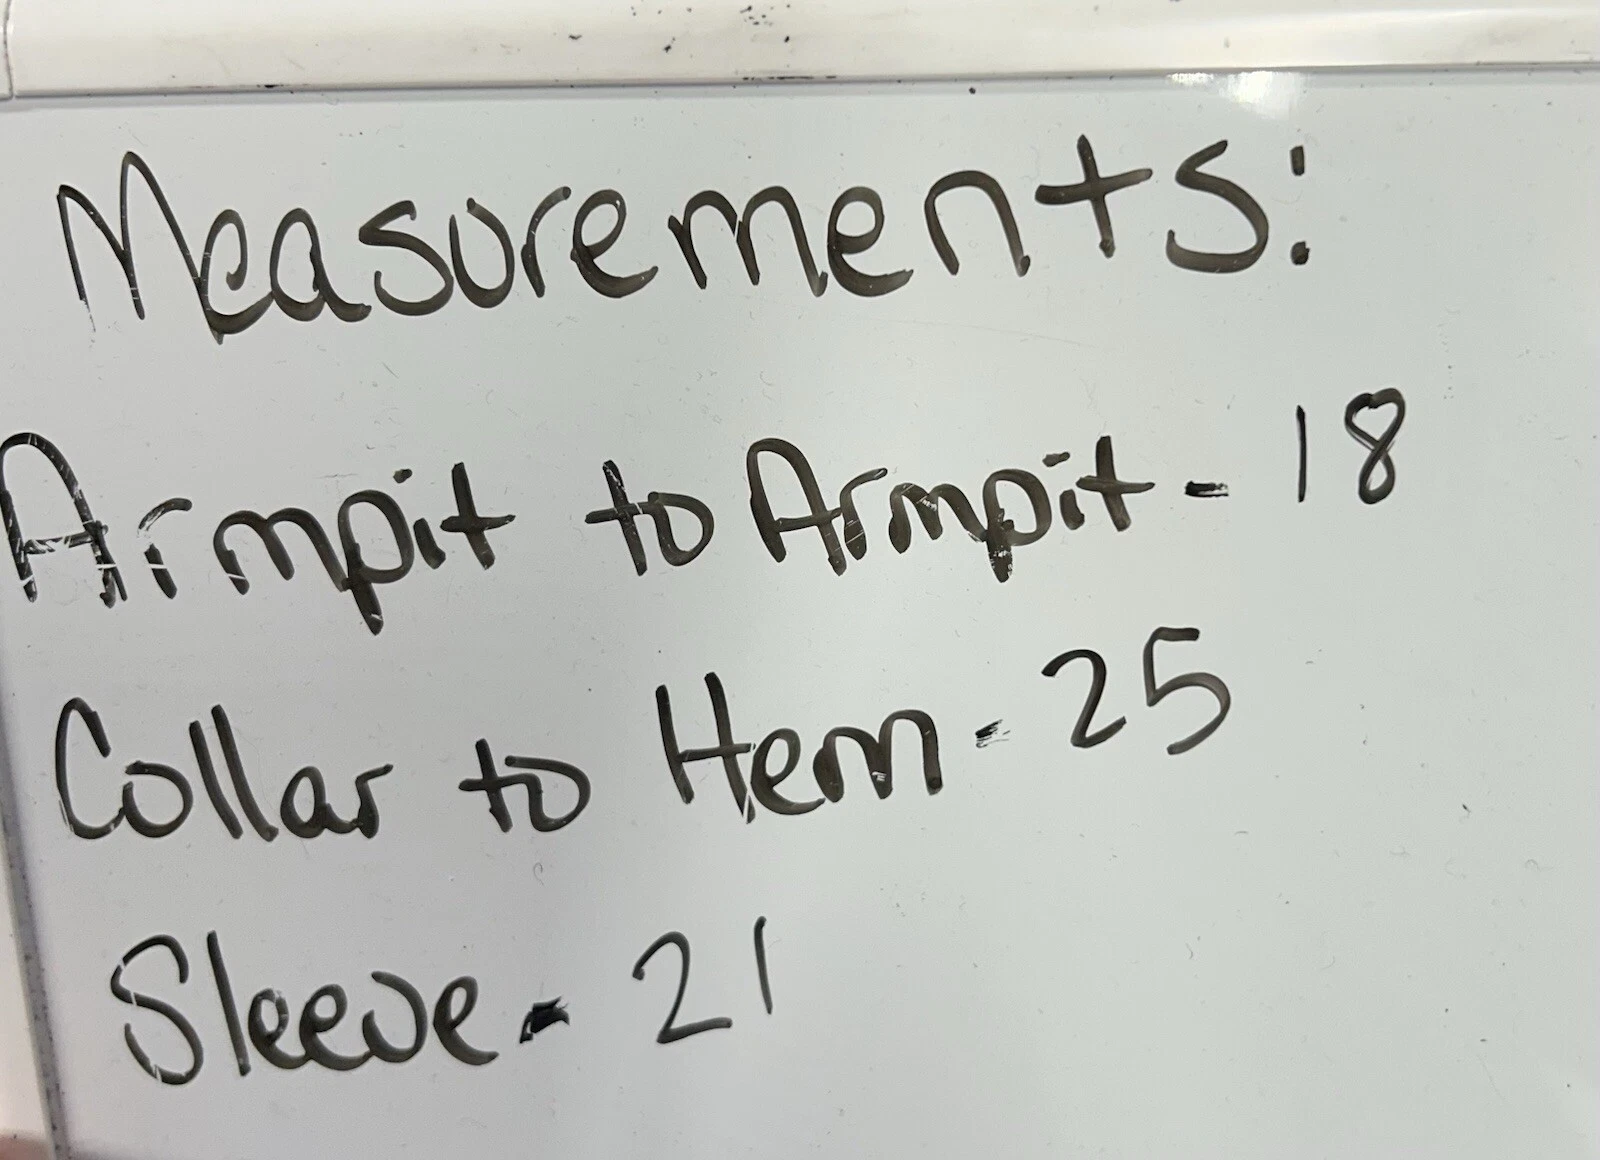 Measurements:
Armpit to Armpit - 18
Collar to Hem - 25
Sleeve - 21